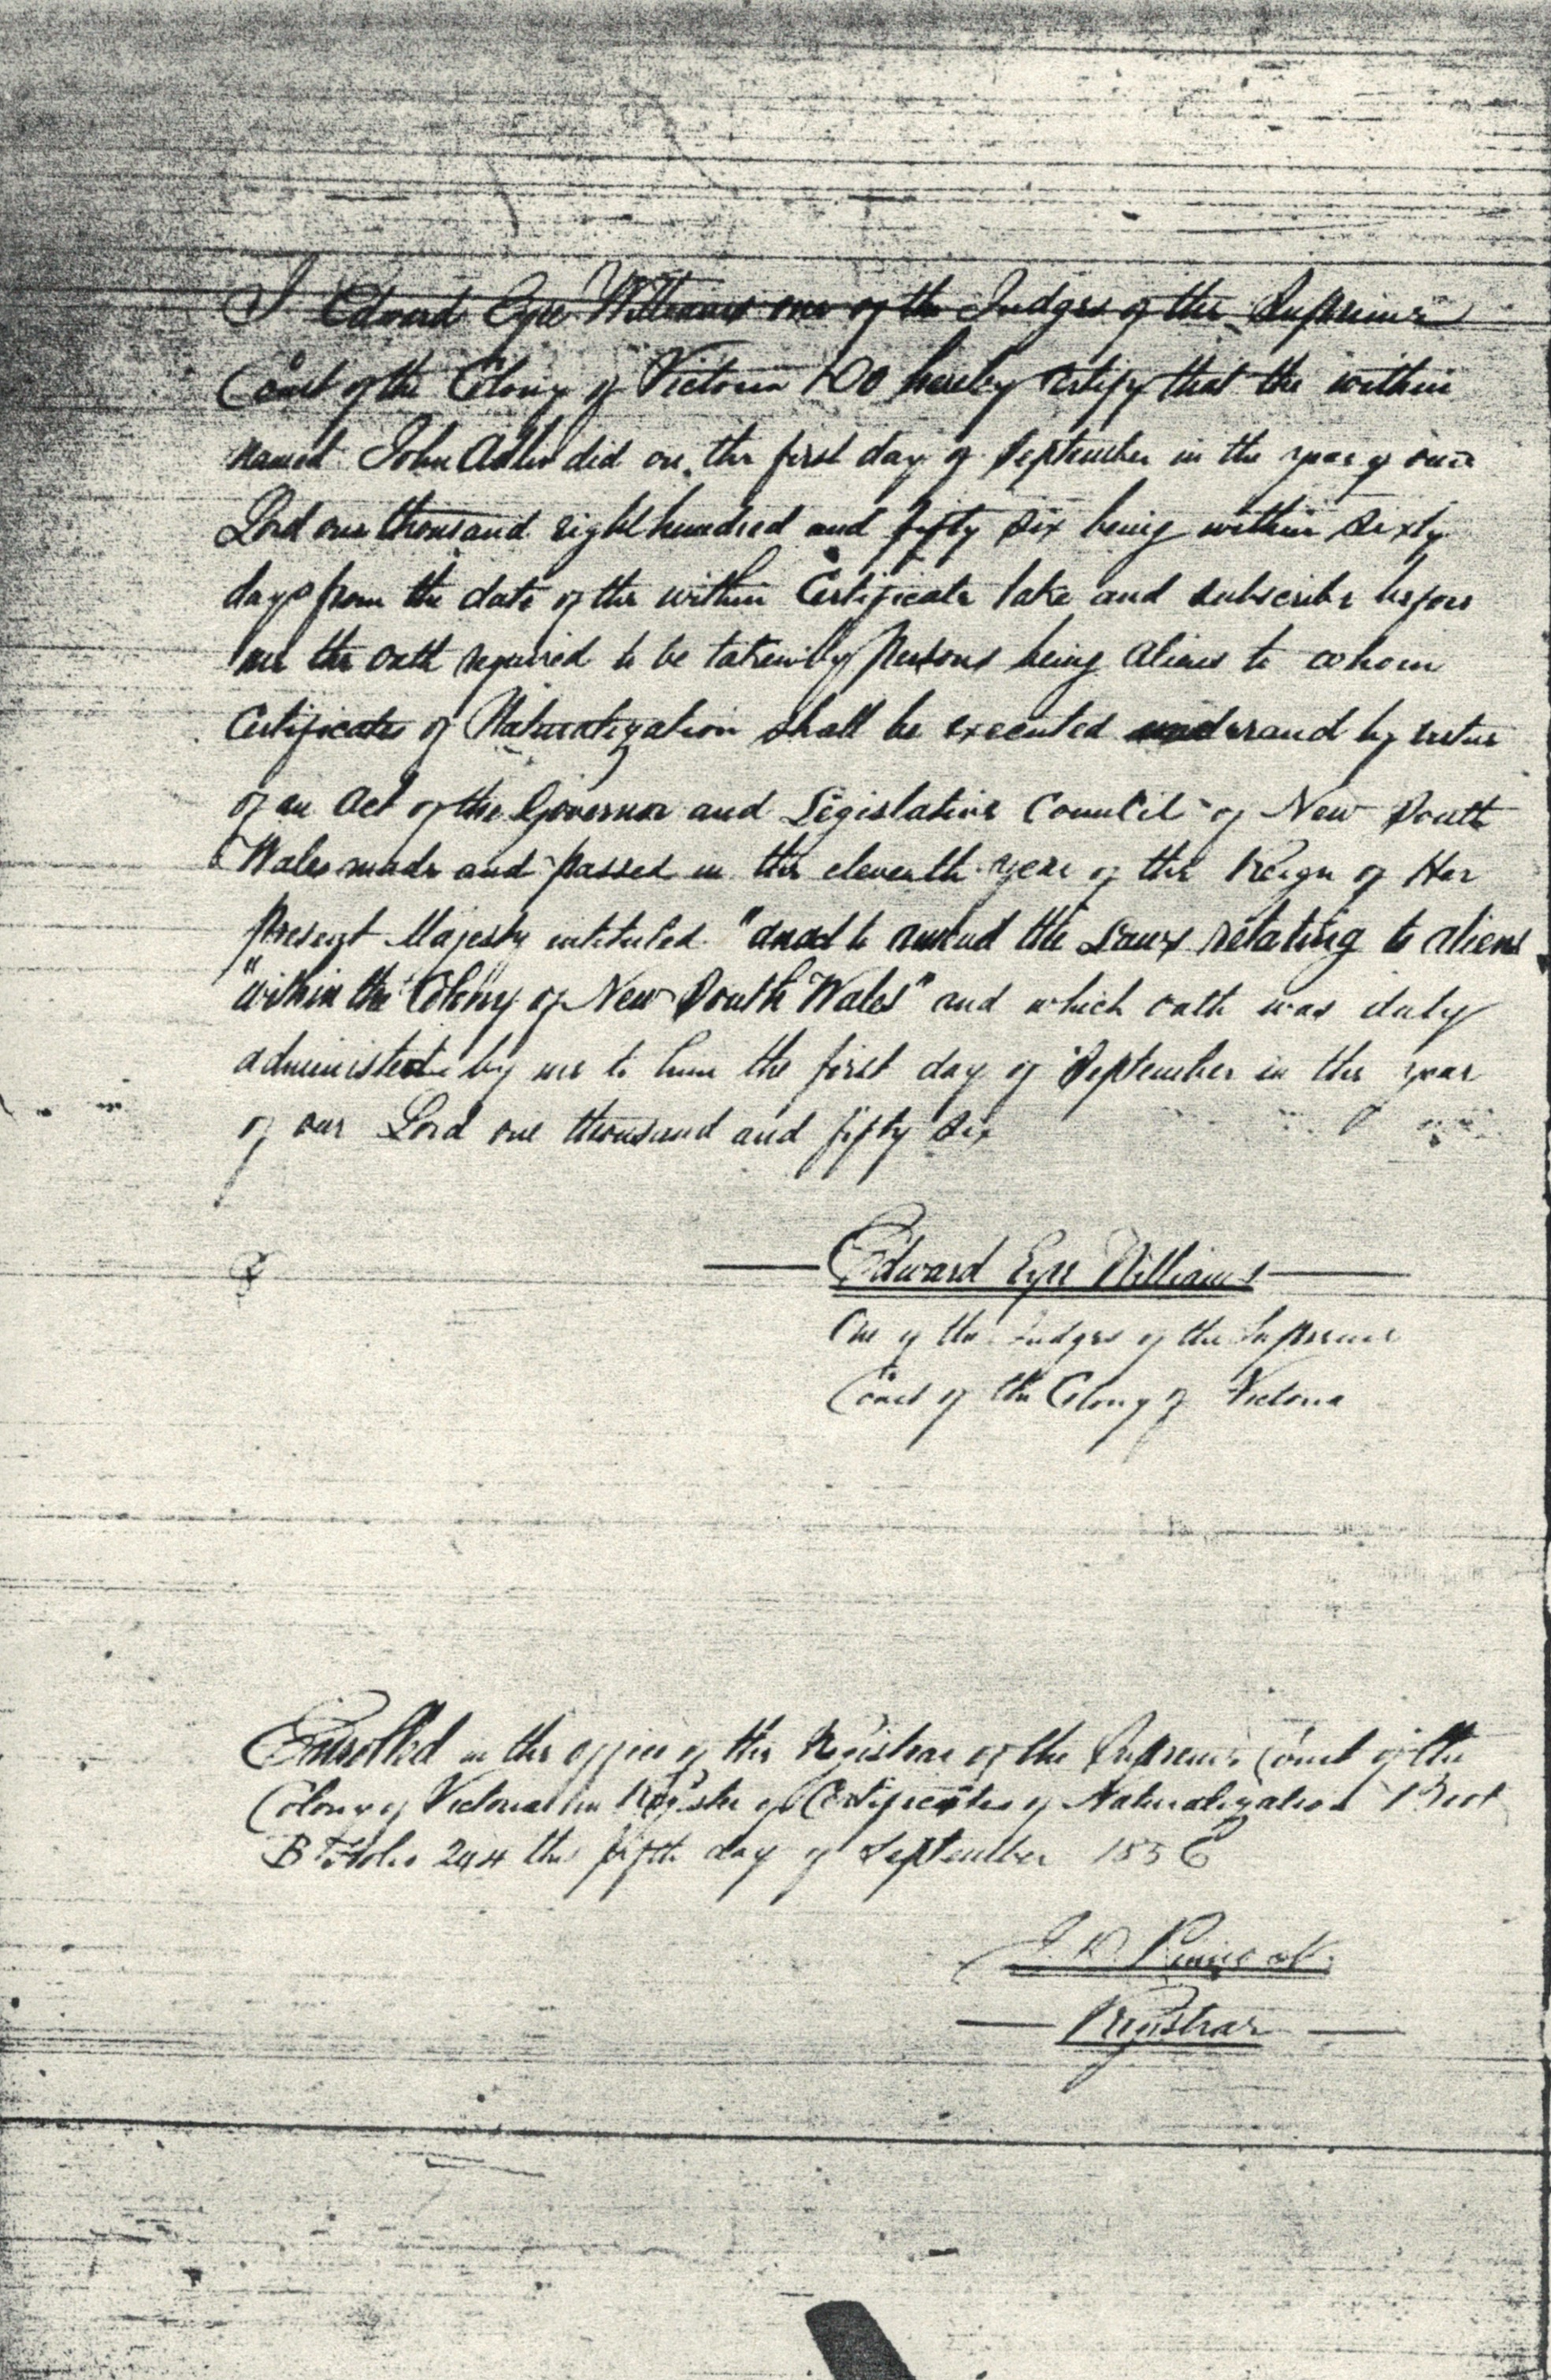 I Edward Eyre Williams one of the Judges of the Supreme
Court of the Colony of Victoria Do hereby certify that the within
named John Adler did on the first day of September in the year of our
Lord one thousand eight hundred and fifty six being within sixty
days from the date of the within Certificate take and subscribe before
me the oath required to be taken by persons being aliens to whom
Certificates of Naturalization shall be executed under and by virtue
of an Act of the Governor and Legislative Council of New South
Wales made and passed in the eleventh year of the Reign of Her
present Majesty intituled "an act to amend the Laws relating to aliens
"within the Colony of New South Wales" and which oath was duly
administered by me to him the first day of September in the year
of our Lord one thousand and fifty six
Edward Eyre Williams
One of the Judges of the Supreme
Court of the Colony of Victoria
Enrolled in the office of the Registrar of the Supreme Court of the
Colony of Victoria in Register of Certificates of Naturalization Book
B Folio 244 this fifth day of September 1856
Registrar